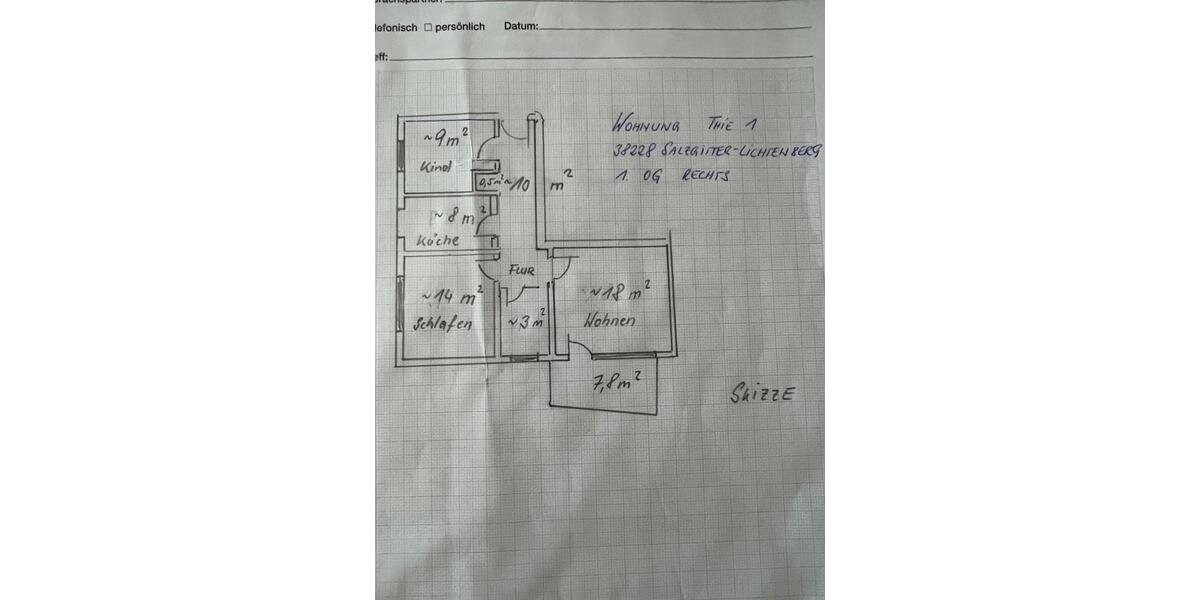 efonisch □ persönlich Datum:
eff:
WOHNUNG THIE 1
38228 SALZGITTER-LICHTENBERG
1. OG RECHTS
~9m²
Kind
0,5m² ~10 m²
~8m²
Köche
FLUR
~14 m²
Schlafen
~3m²
~18 m²
Wohnen
7,8m²
SKIZZE